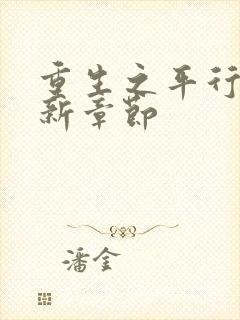 重生之平行
新章节
潘金